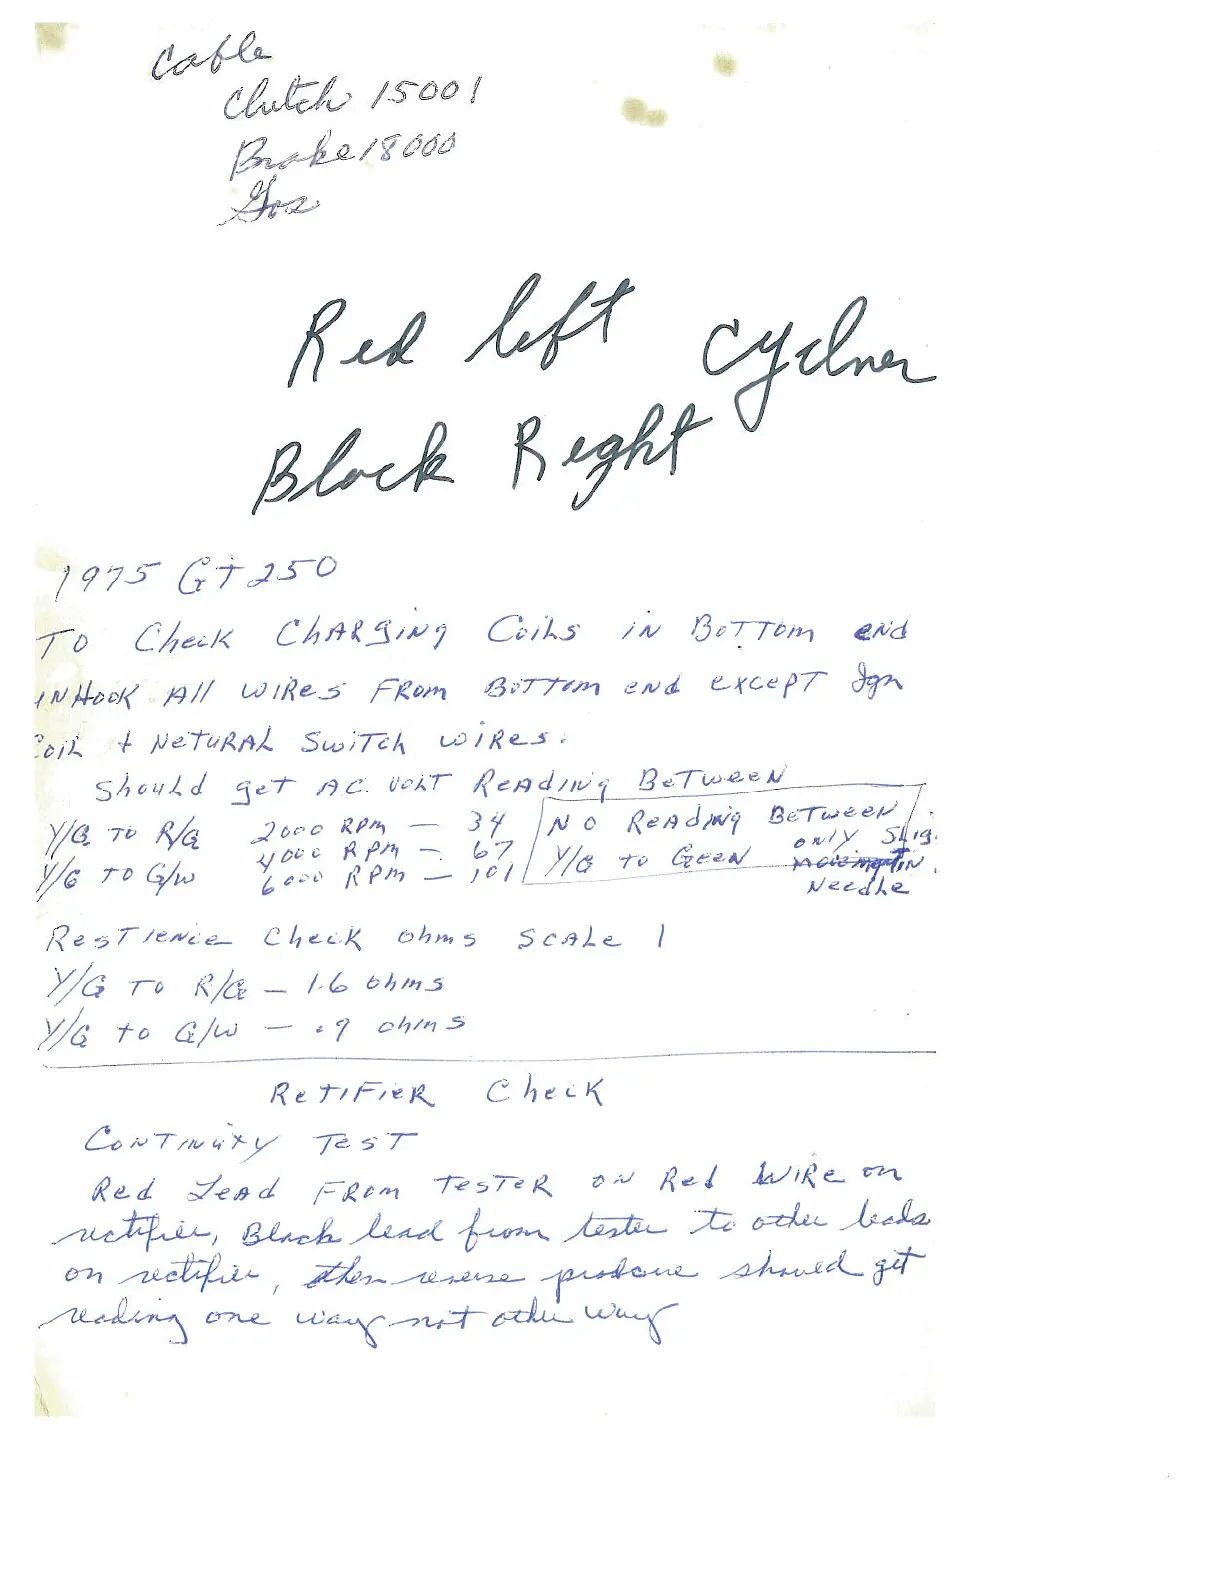 Cable
Clutch 15001
Brake 18000
Gas
Red left cyclner
Black Reght
1975 GT 250
To Check Charging Coils in Bottom end
unHook All wires From Bottom end except Ign
Coil + Netural Switch wires.
Should get AC. volt Reading Between
Y/G To R/G 2000 RPM — 34
4000 RPM — 67
Y/G To G/W 6000 RPM — 101
No Reading Between
Y/G to Geen only Slig.
in
Needle
Restience Check ohms Scale 1
Y/G To R/G — 1.6 ohms
Y/G to G/W — .9 ohms
Retifier Check
Continuity Test
Red Lead From Tester on Red Wire on
rectifier, Black lead from tester to other leads
on rectifier, then reverse produre should get
reading one way not other way